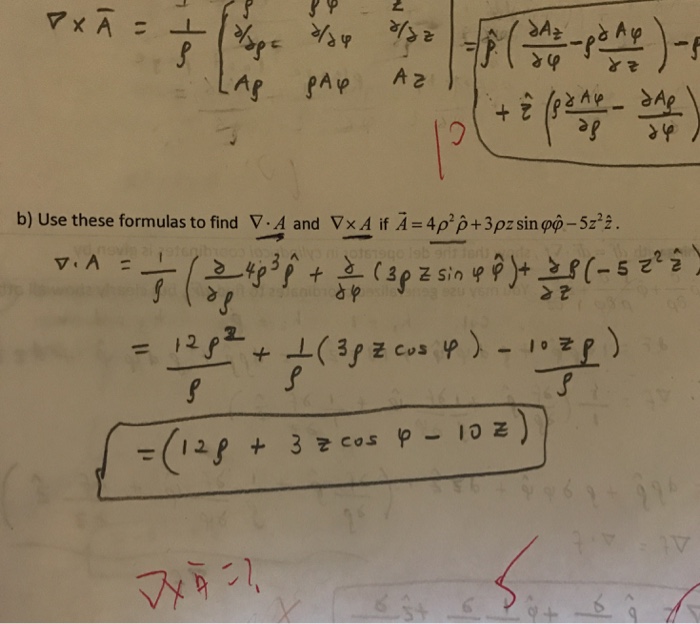 ∇ × A̅ = 1/ρ [ ρ̂ ρφ̂ z = ρ̂ ( ∂Az/∂φ − ρ∂Aφ/∂z ) − ρ
∂/∂ρ ∂/∂φ ∂/∂z
Aρ ρAφ Az + ẑ ( ρ∂Aφ/∂ρ − ∂Aρ/∂φ )
b) Use these formulas to find ∇·A and ∇×A if A̅ = 4ρ²ρ̂ + 3ρz sin φφ̂ − 5z²ẑ.
∇·A = 1/ρ ( ∂/∂ρ 4ρ³ρ̂ + ∂/∂φ (3ρ z sin φ φ̂) + ∂/∂z ρ(−5 z² ẑ)
= 12ρ²/ρ + 1/ρ (3ρ z cos φ) − 10zρ/ρ )
= (12ρ + 3 z cos φ − 10 z)
∇×A̅ = ?